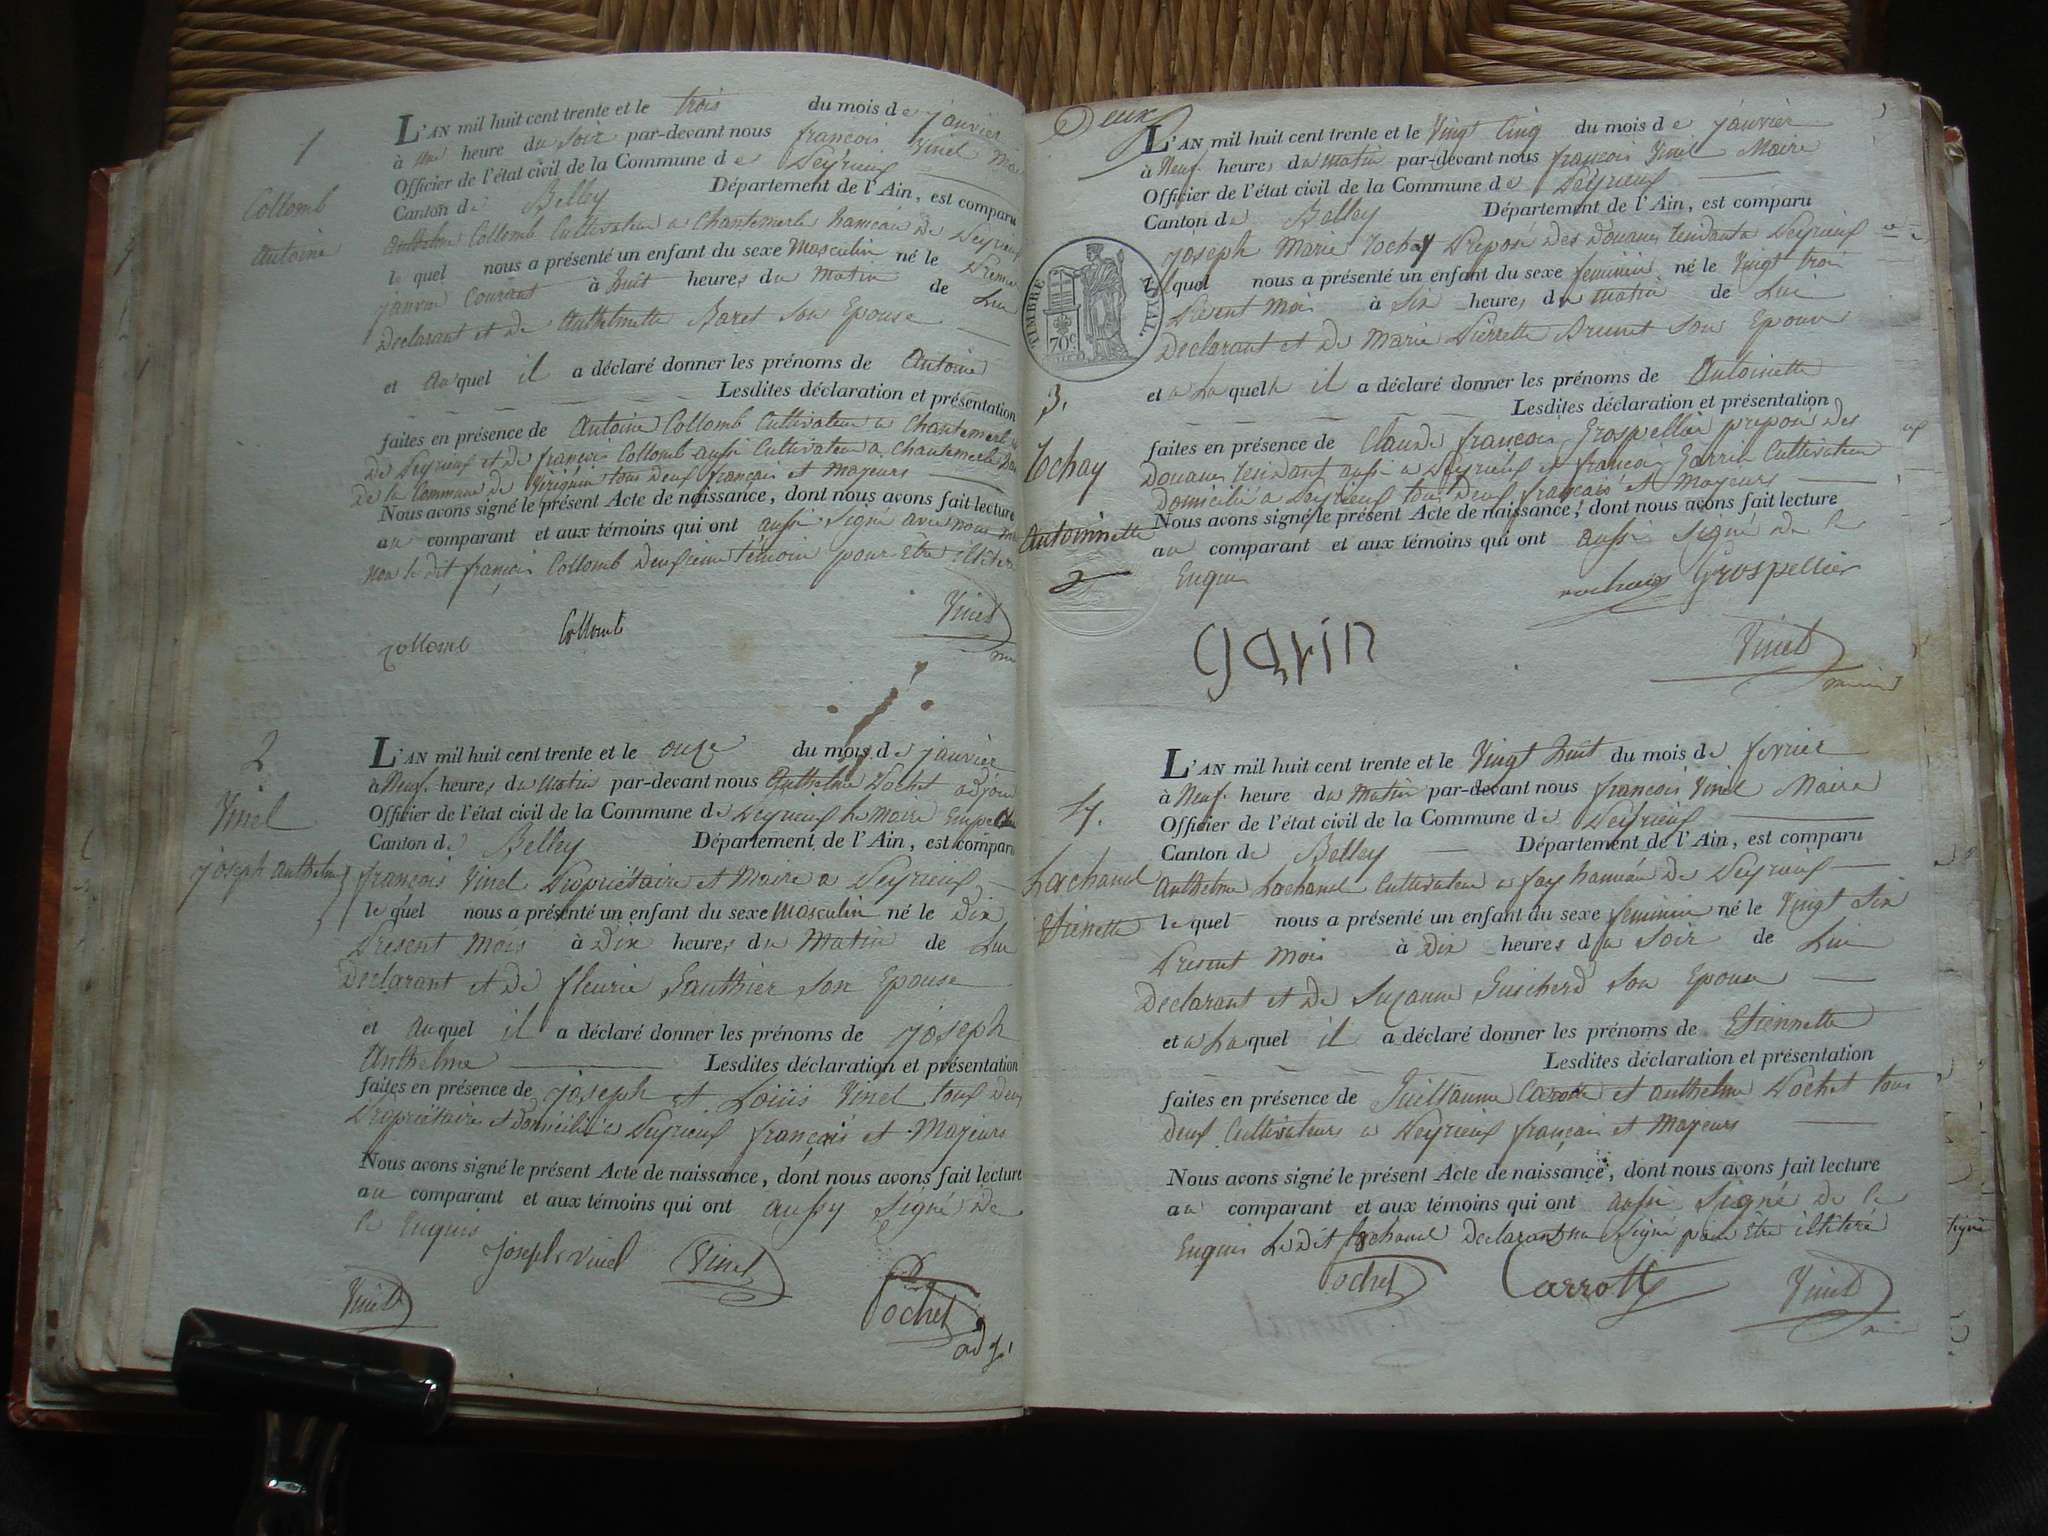 1
Collomb
Antoine
L'AN mil huit cent trente et le trois du mois de janvier
à une heure du soir par-devant nous françois Vinel
Officier de l'état civil de la Commune de Peyrieux
Canton de Belley Département de l'Ain, est comparu
Anthelme Collomb Cultivateur a Chantemerle hameau de Peyrieux
le quel nous a présenté un enfant du sexe Masculin né le Premier
janvier Courant à huit heures du Matin de Lui
Declarant et de Anthelmette Baret son Epouse
et Auquel il a déclaré donner les prénoms de Antoine
Lesdites déclaration et présentation
faites en présence de Antoine Collomb Cultivateur a Chantemerle
de Peyrieux et de françois Collomb aussi Cultivateur a Chantemerle
de la Commune de tous deux français et Majeurs
Nous avons signé le présent Acte de naissance, dont nous avons fait lecture
au comparant et aux témoins qui ont aussi signé avec nous
non le dit françois Collomb deuxieme témoin pour être
Collomb Collomb Vinel
2
Vinel
joseph anthelme
L'AN mil huit cent trente et le onze du mois de janvier
à Neuf heures du Matin par-devant nous Anthelme Pochet adjoint
Officier de l'état civil de la Commune de Peyrieux le Maire
Canton de Belley Département de l'Ain, est comparu
françois Vinel Propriétaire et Maire a Peyrieux
le quel nous a présenté un enfant du sexe Masculin né le Dix
Present Mois à Dix heures du Matin de Lui
Declarant et de fleurie Gauthier son Epouse
et Auquel il a déclaré donner les prénoms de joseph
Anthelme Lesdites déclaration et présentation
faites en présence de joseph et Louis Vinel tous deux
Propriétaires et domiciliés a Peyrieux français et Majeurs
Nous avons signé le présent Acte de naissance, dont nous avons fait lecture
au comparant et aux témoins qui ont aussy signé De
ce Enquis
joseph vinel Vinel
Vinel Pochet
adj
Deux
TIMBRE ROYAL
70c
3.
Rochay
Antoinnette
2
L'AN mil huit cent trente et le Vingt Cinq du mois de janvier
à Neuf heures du matin par-devant nous françois Vinel Maire
Officier de l'état civil de la Commune de Peyrieux
Canton de Belley Département de l'Ain, est comparu
joseph Marie Rochay Préposé des douanes residant a Peyrieux
lequel nous a présenté un enfant du sexe feminin né le Vingt trois
Present Mois à Six heures du matin de Lui
Declarant et de Marie Pierrette Brunet son Epouse
et a La quelle il a déclaré donner les prénoms de Antoinette
Lesdites déclaration et présentation
faites en présence de Claude françois Grospellier préposé des
Douanes residant aussi a Peyrieux et françois Garrin Cultivateur
Domicilié a Peyrieux tous deux français et Majeurs
Nous avons signé le présent Acte de naissance, dont nous avons fait lecture
au comparant et aux témoins qui ont aussi signé de ce
Enquis
Grospellier
garin Vinel
4.
Lachand
Etienette
L'AN mil huit cent trente et le Vingt huit du mois de fevrier
à Neuf heure du Matin par-devant nous françois Vinel Maire
Officier de l'état civil de la Commune de Peyrieux
Canton de Belley Département de l'Ain, est comparu
Anthelme Lachand Cultivateur a fay hameau de Peyrieux
le quel nous a présenté un enfant du sexe feminin né le Vingt Six
Present Mois à Dix heures du Soir de Lui
Declarant et de Suzanne son Epouse
et a La quel il a déclaré donner les prénoms de Etiennette
Lesdites déclaration et présentation
faites en présence de Guillaume Carrotte et anthelme Pochet tous
deux Cultivateurs a Peyrieux français et Majeurs
Nous avons signé le présent Acte de naissance, dont nous avons fait lecture
au comparant et aux témoins qui ont aussi signé de ce
Enquis Le dit Lachand Declarant signé pour être
Pochet Carrott Vinel